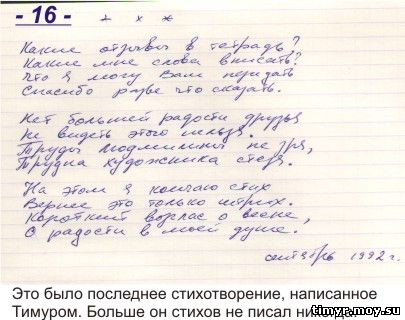 - 16 -
+ x *
Какие отзывы в тетрадь?
Какие мне слова вписать?
Что я могу Вам передать
Спасибо разве что сказать.
Нет большей радости друзья
Не видеть этого нельзя.
Труды Людмилины не зря,
Трудна художника стезя.
На этом я кончаю стих
Вернее это только штрих.
Короткий возглас о весне,
О радости в моей душе.
сентябрь 1992 г.
Это было последнее стихотворение, написанное
Тимуром. Больше он стихов не писал никогда.
timyr.moy.su